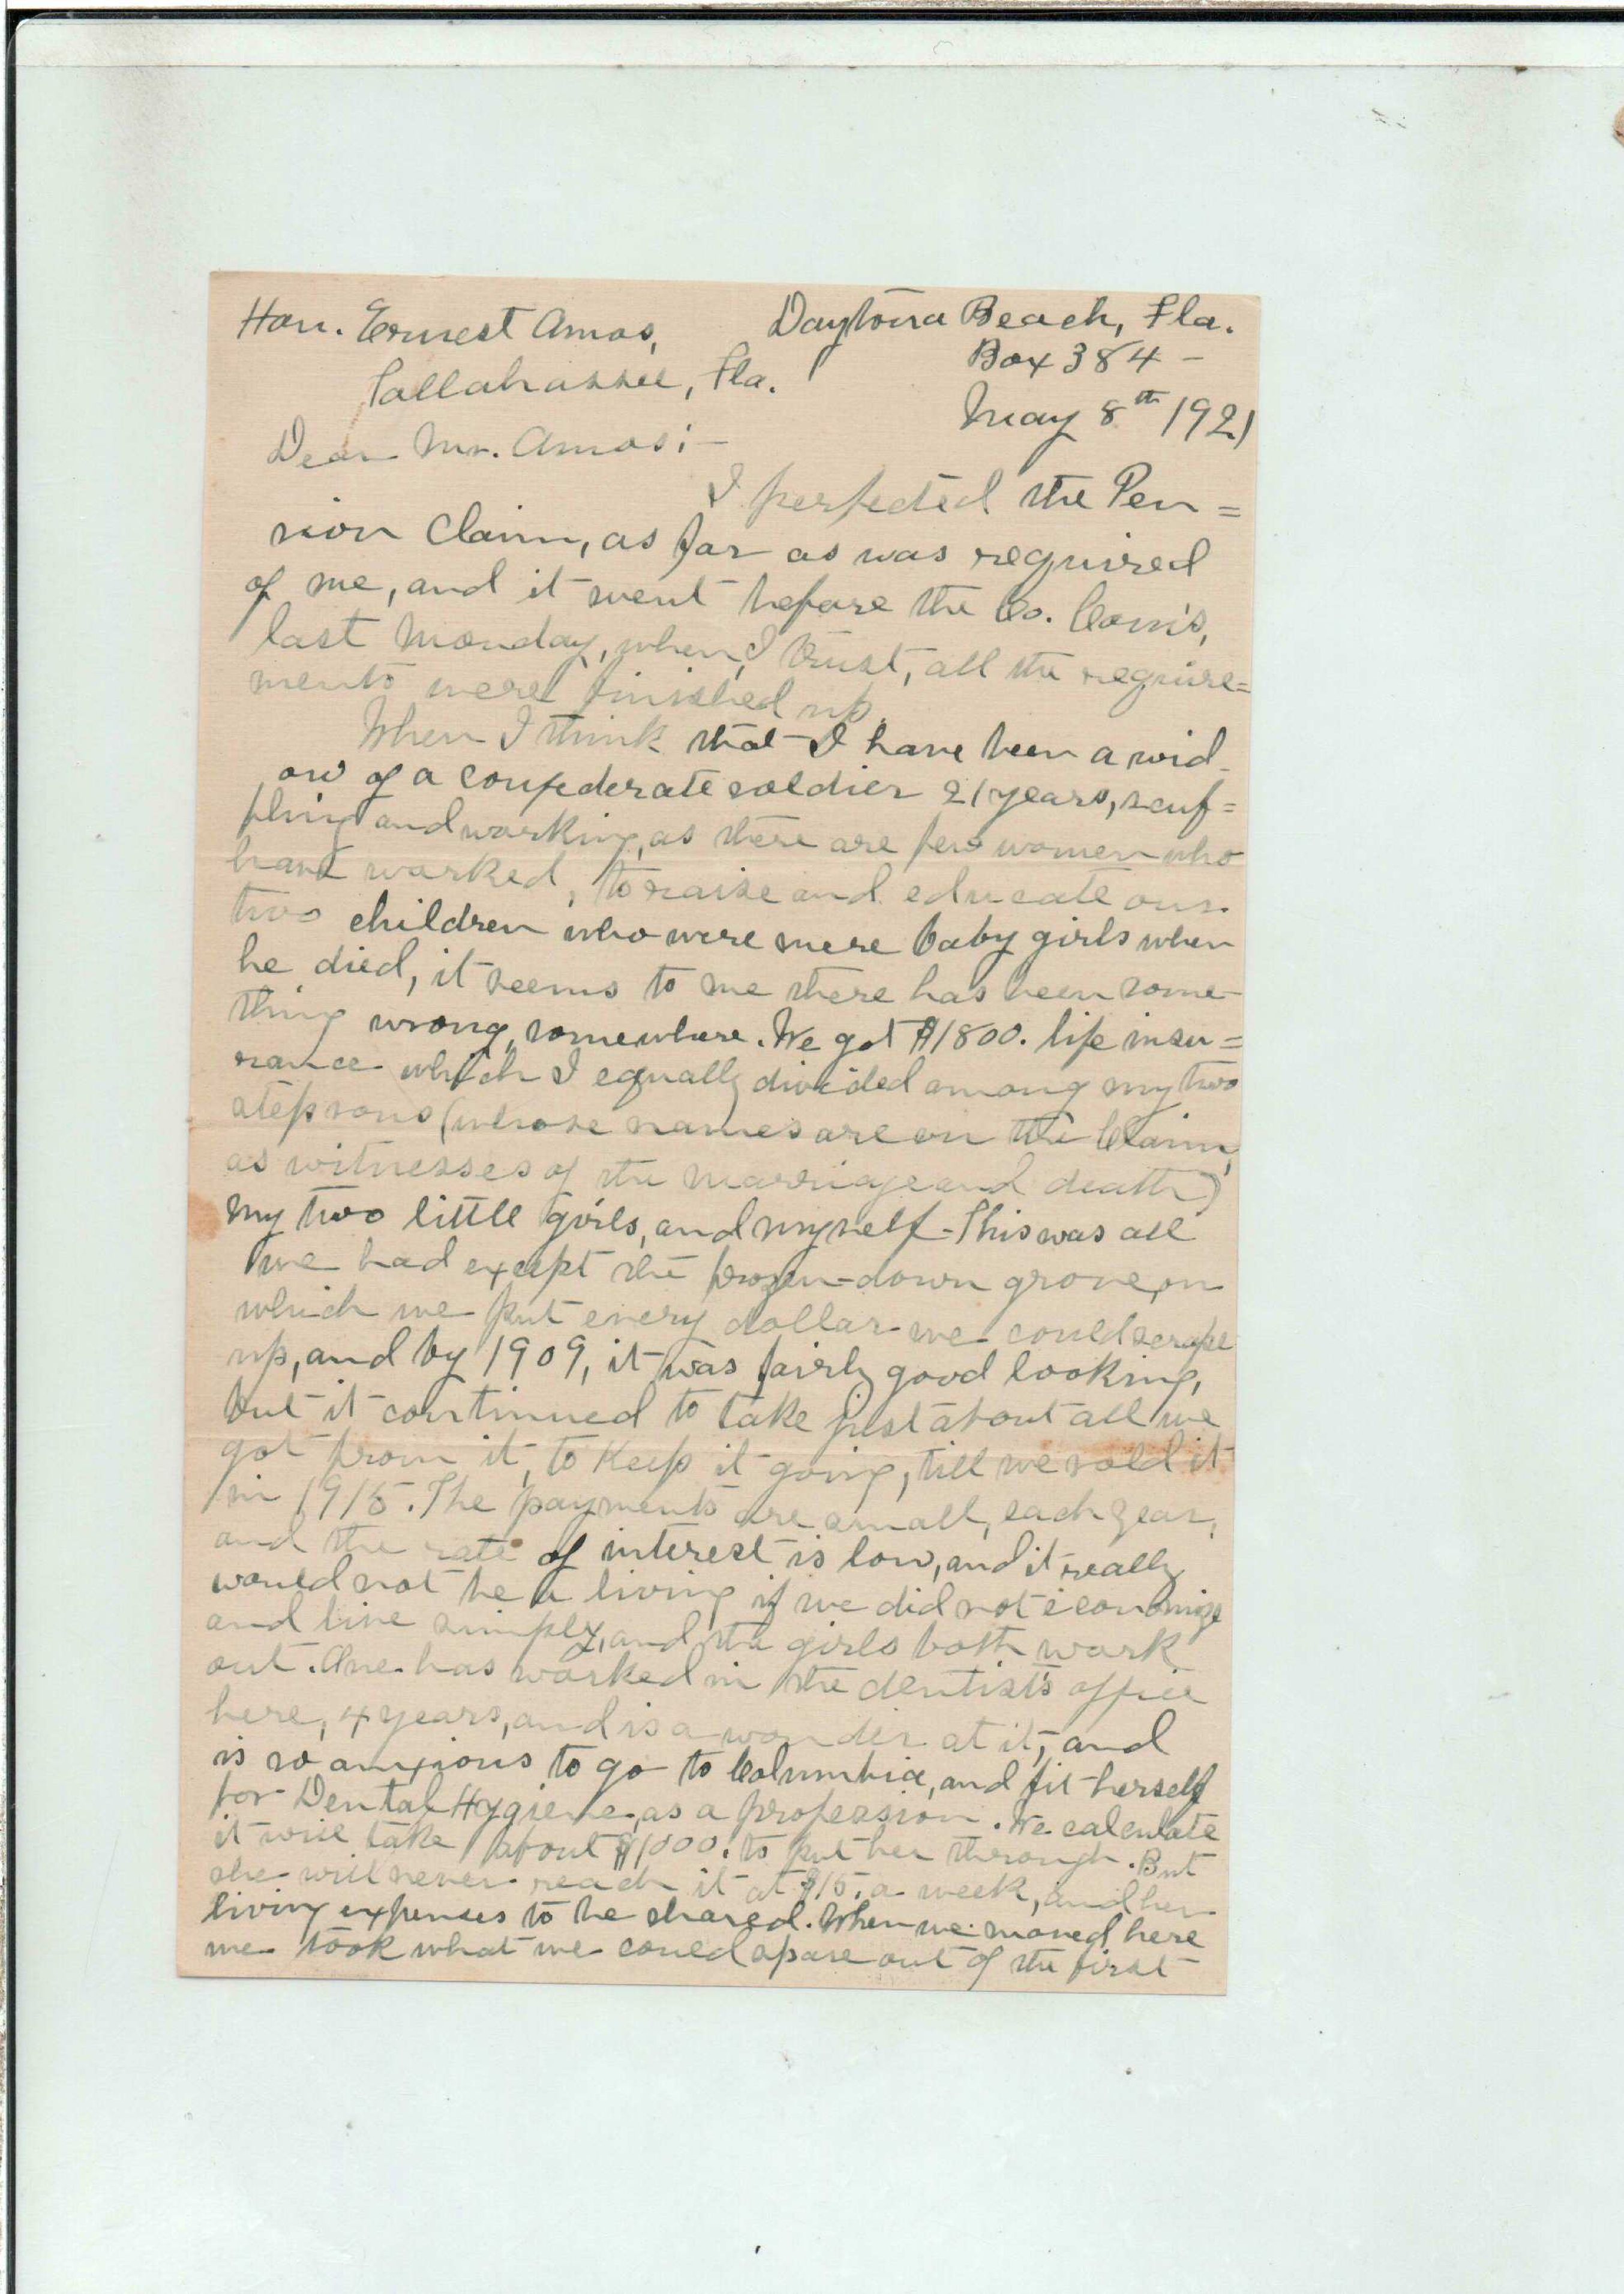 Hon. Ernest Amos,
Tallahassee, Fla.
Daytona Beach, Fla.
Box 384 -
May 8th 1921
Dear Mr. Amos:-
I perfected the Pen=
sion Claim, as far as was required
of me, and it went before the Co. Com's,
last Monday, when, I trust, all the require=
ments were finished up.
When I think that I have been a wid-
ow of a confederate soldier 21 years, scuf=
fling and working, as there are few women who
have worked, to raise and educate our
two children who were mere baby girls when
he died, it seems to me there has been some-
thing wrong, somewhere. We got $1800. life insu=
rance which I equally divided among my two
stepsons (whose names are on the Claim,
as witnesses of the marriage and death)
my two little girls, and myself - This was all
we had except the frozen-down grove, on
which we put every dollar we could scrape
up, and by 1909, it was fairly good looking,
but it continued to take just about all we
got from it, to keep it going, till we sold it
in 1915. The payments are small, each year,
and the rate of interest is low, and it really
would not be a living if we did not economize
and live simply, and the girls both work
out. One has worked in the dentist's office
here, 4 years, and is a wonder at it, and
is so anxious to go to Columbia, and fit herself
for Dental Hygiene, as a profession. We calculate
it will take about $1000. to put her through. But
she will never reach it at $15. a week, and her
living expenses to be shared. When we moved here
we took what we could spare out of the first